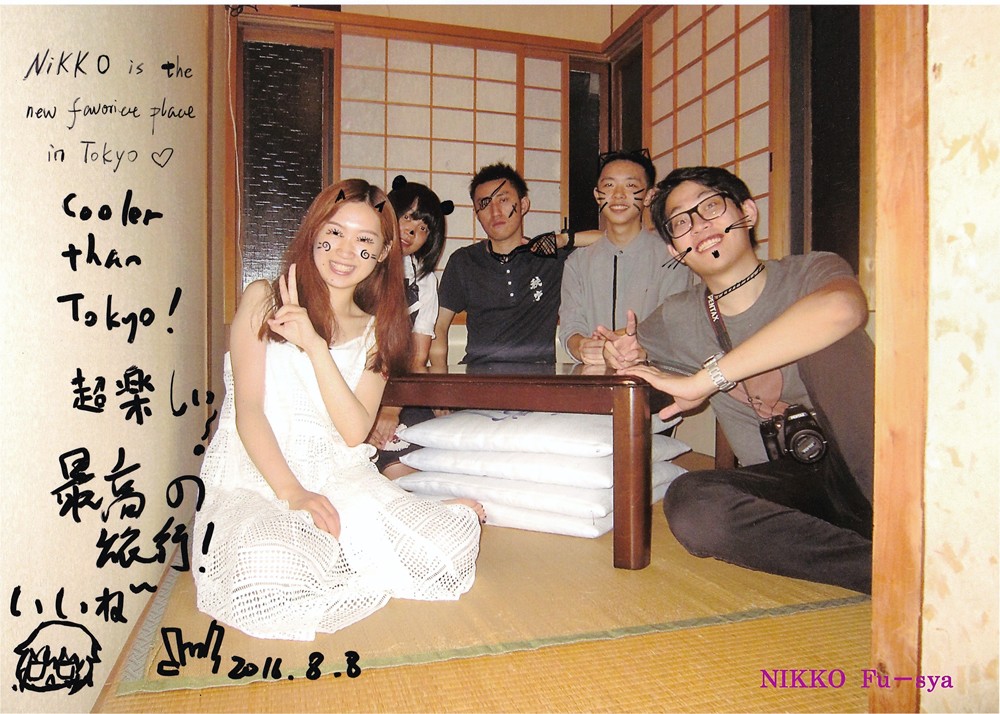 NiKKO is the
new favorite place
in Tokyo ♡
Cooler
than
Tokyo!
超楽しい!
最高の
旅行!
いいね~
2016.8.8
PENTAX
NIKKO Fu－sya